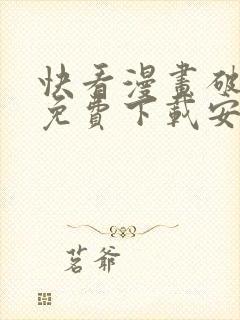 快看漫畫破
免費下載安
茗爺